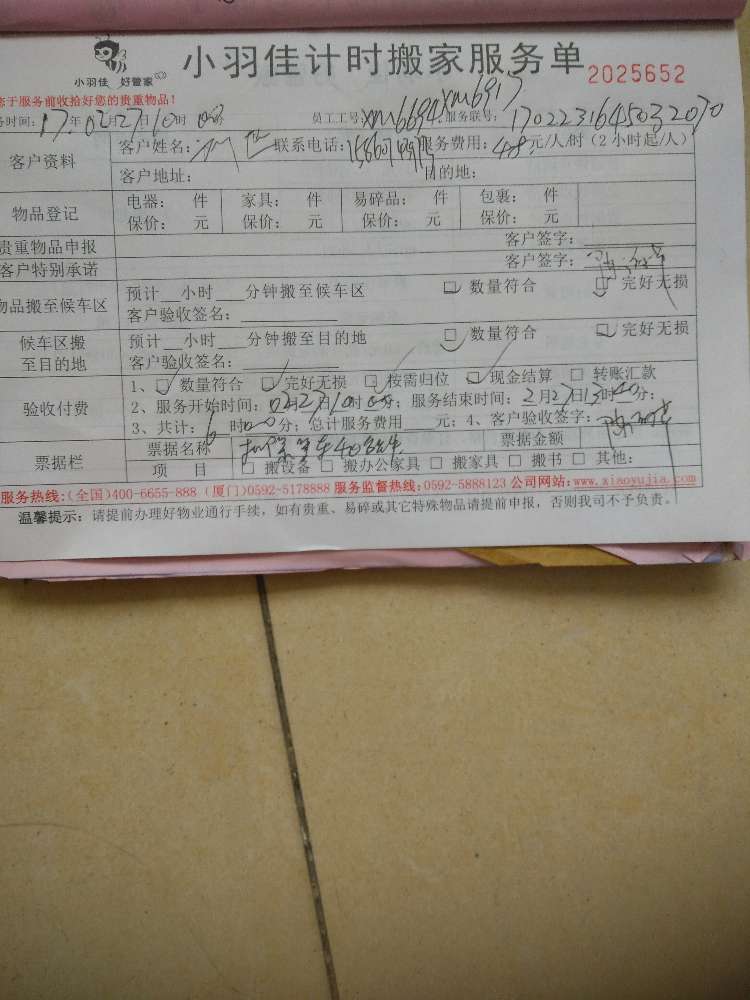 小羽佳 好管家
小羽佳计时搬家服务单 2025652
于服务前收拾好您的贵重物品!
务时间: 17年02月27日10时 员工工号: xm6694 xm6917 服务联号: 1702231645032070
客户资料 客户姓名: 联系电话: 服务费用: 48元/人/时(2小时起/人)
客户地址: 目的地:
物品登记 电器: 件 家具: 件 易碎品: 件 包裹: 件
保价: 元 保价: 元 保价: 元 保价: 元
贵重物品申报 客户签字:
客户特别承诺 客户签字:
物品搬至候车区 预计__小时___分钟搬至候车区 □ 数量符合 □ 完好无损
客户验收签名:
候车区搬至目的地 预计__小时___分钟搬至目的地 □ 数量符合 □ 完好无损
客户验收签名:
验收付费 1、□ 数量符合 □ 完好无损 □ 按需归位 □ 现金结算 □ 转账汇款
2、服务开始时间: 02月27日10时00分; 服务结束时间: 2月27日13时00分;
3、共计: 6时00分; 总计服务费用____元; 4、客户验收签字:
票据栏 票据名称 票据金额
项 目 □ 搬设备 □ 搬办公家具 □ 搬家具 □ 搬书 □ 其他:
服务热线:(全国)400-6655-888 (厦门)0592-5178888 服务监督热线:0592-5888123 公司网站:www.xiaoyujia.com
温馨提示: 请提前办理好物业通行手续, 如有贵重、易碎或其它特殊物品请提前申报, 否则我司不予负责。